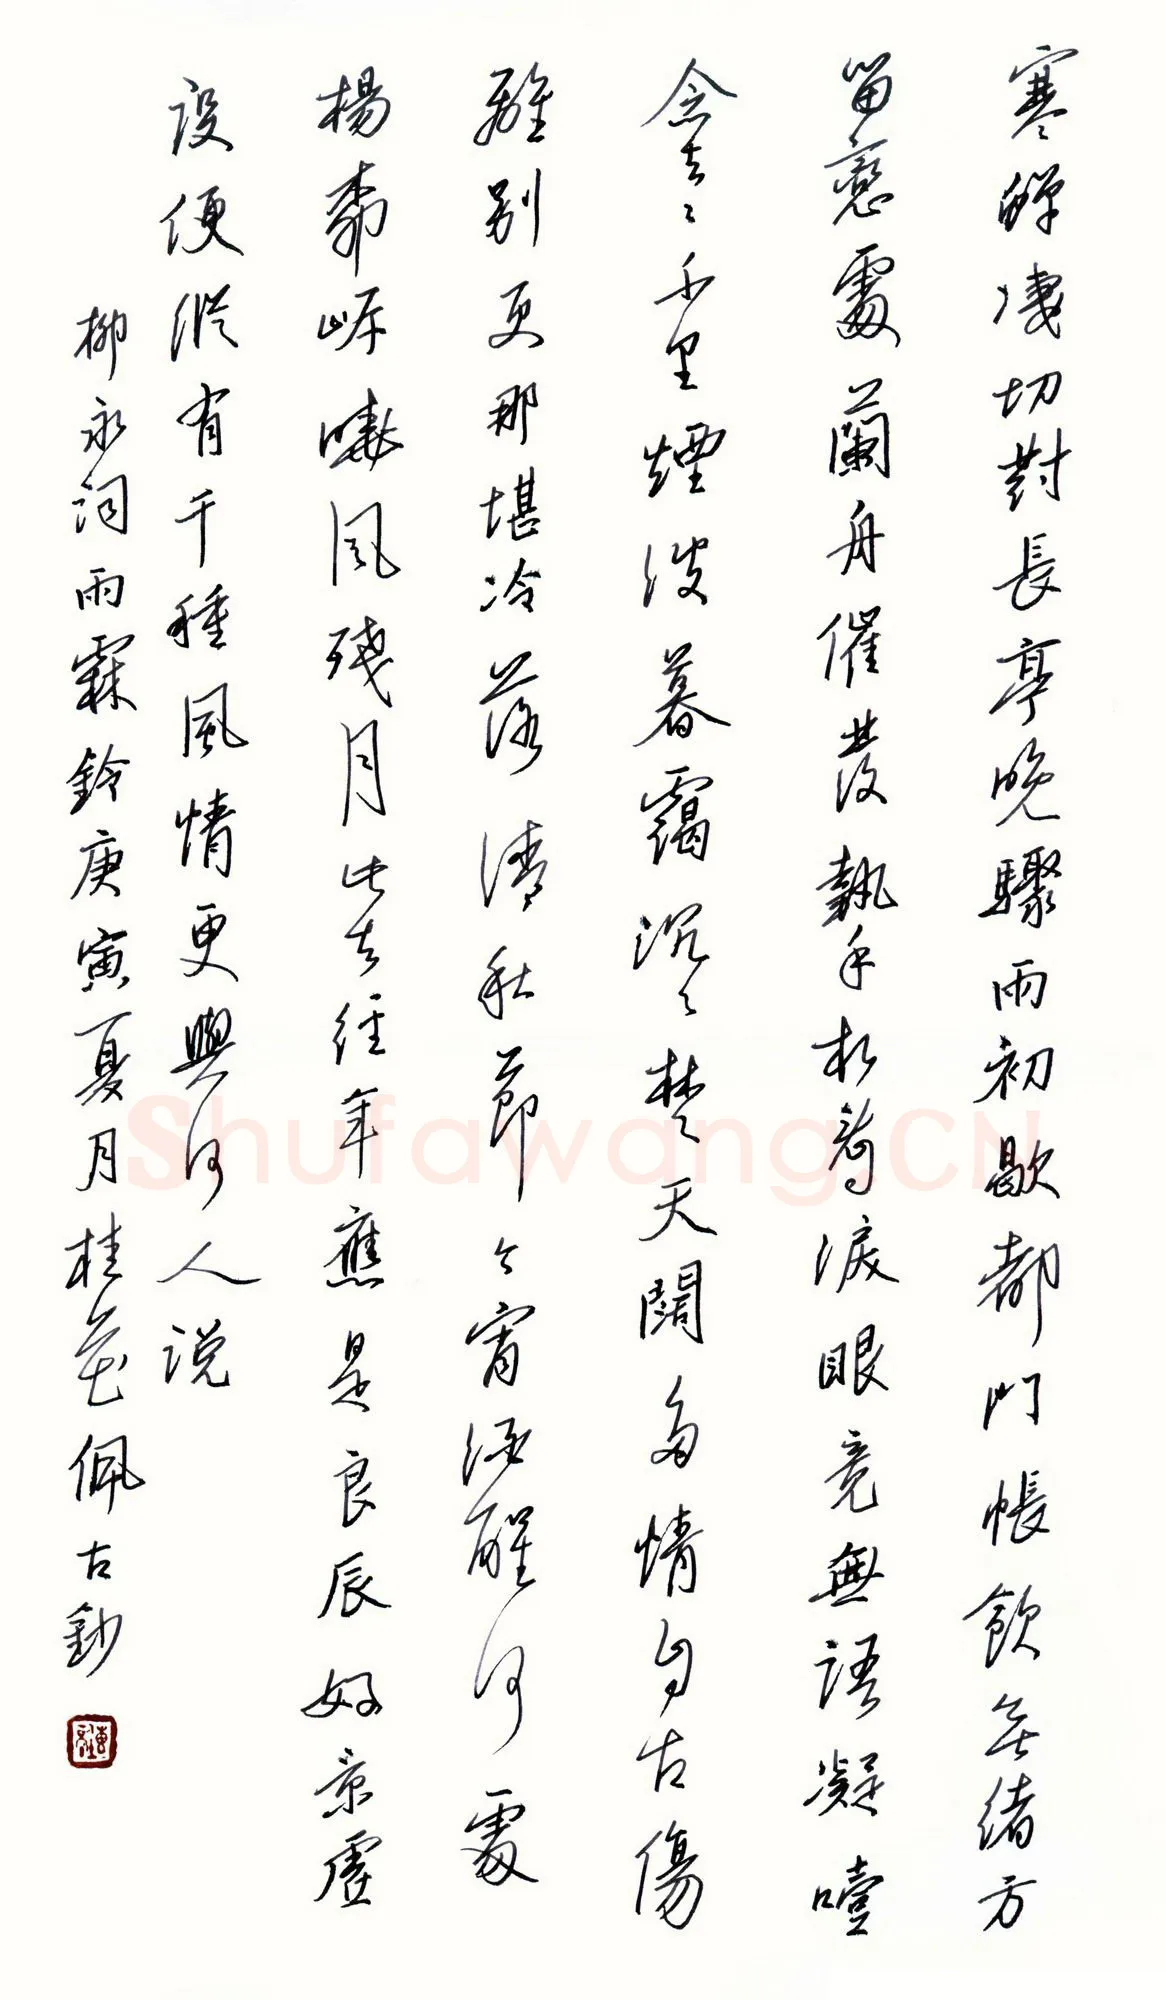 寒蟬凄切對長亭晚驟雨初歇都門帳飲無緒方
留戀處蘭舟催發執手相看淚眼竟無語凝噎
念去々千里煙波暮靄沉々楚天闊多情自古傷
離別更那堪冷落清秋節今宵酒醒何處
楊柳岸曉風殘月此去經年應是良辰好景虛
設便縱有千種風情更與何人说
柳永詞雨霖鈴庚寅夏月桂花佩古鈔
Shufawang.CN